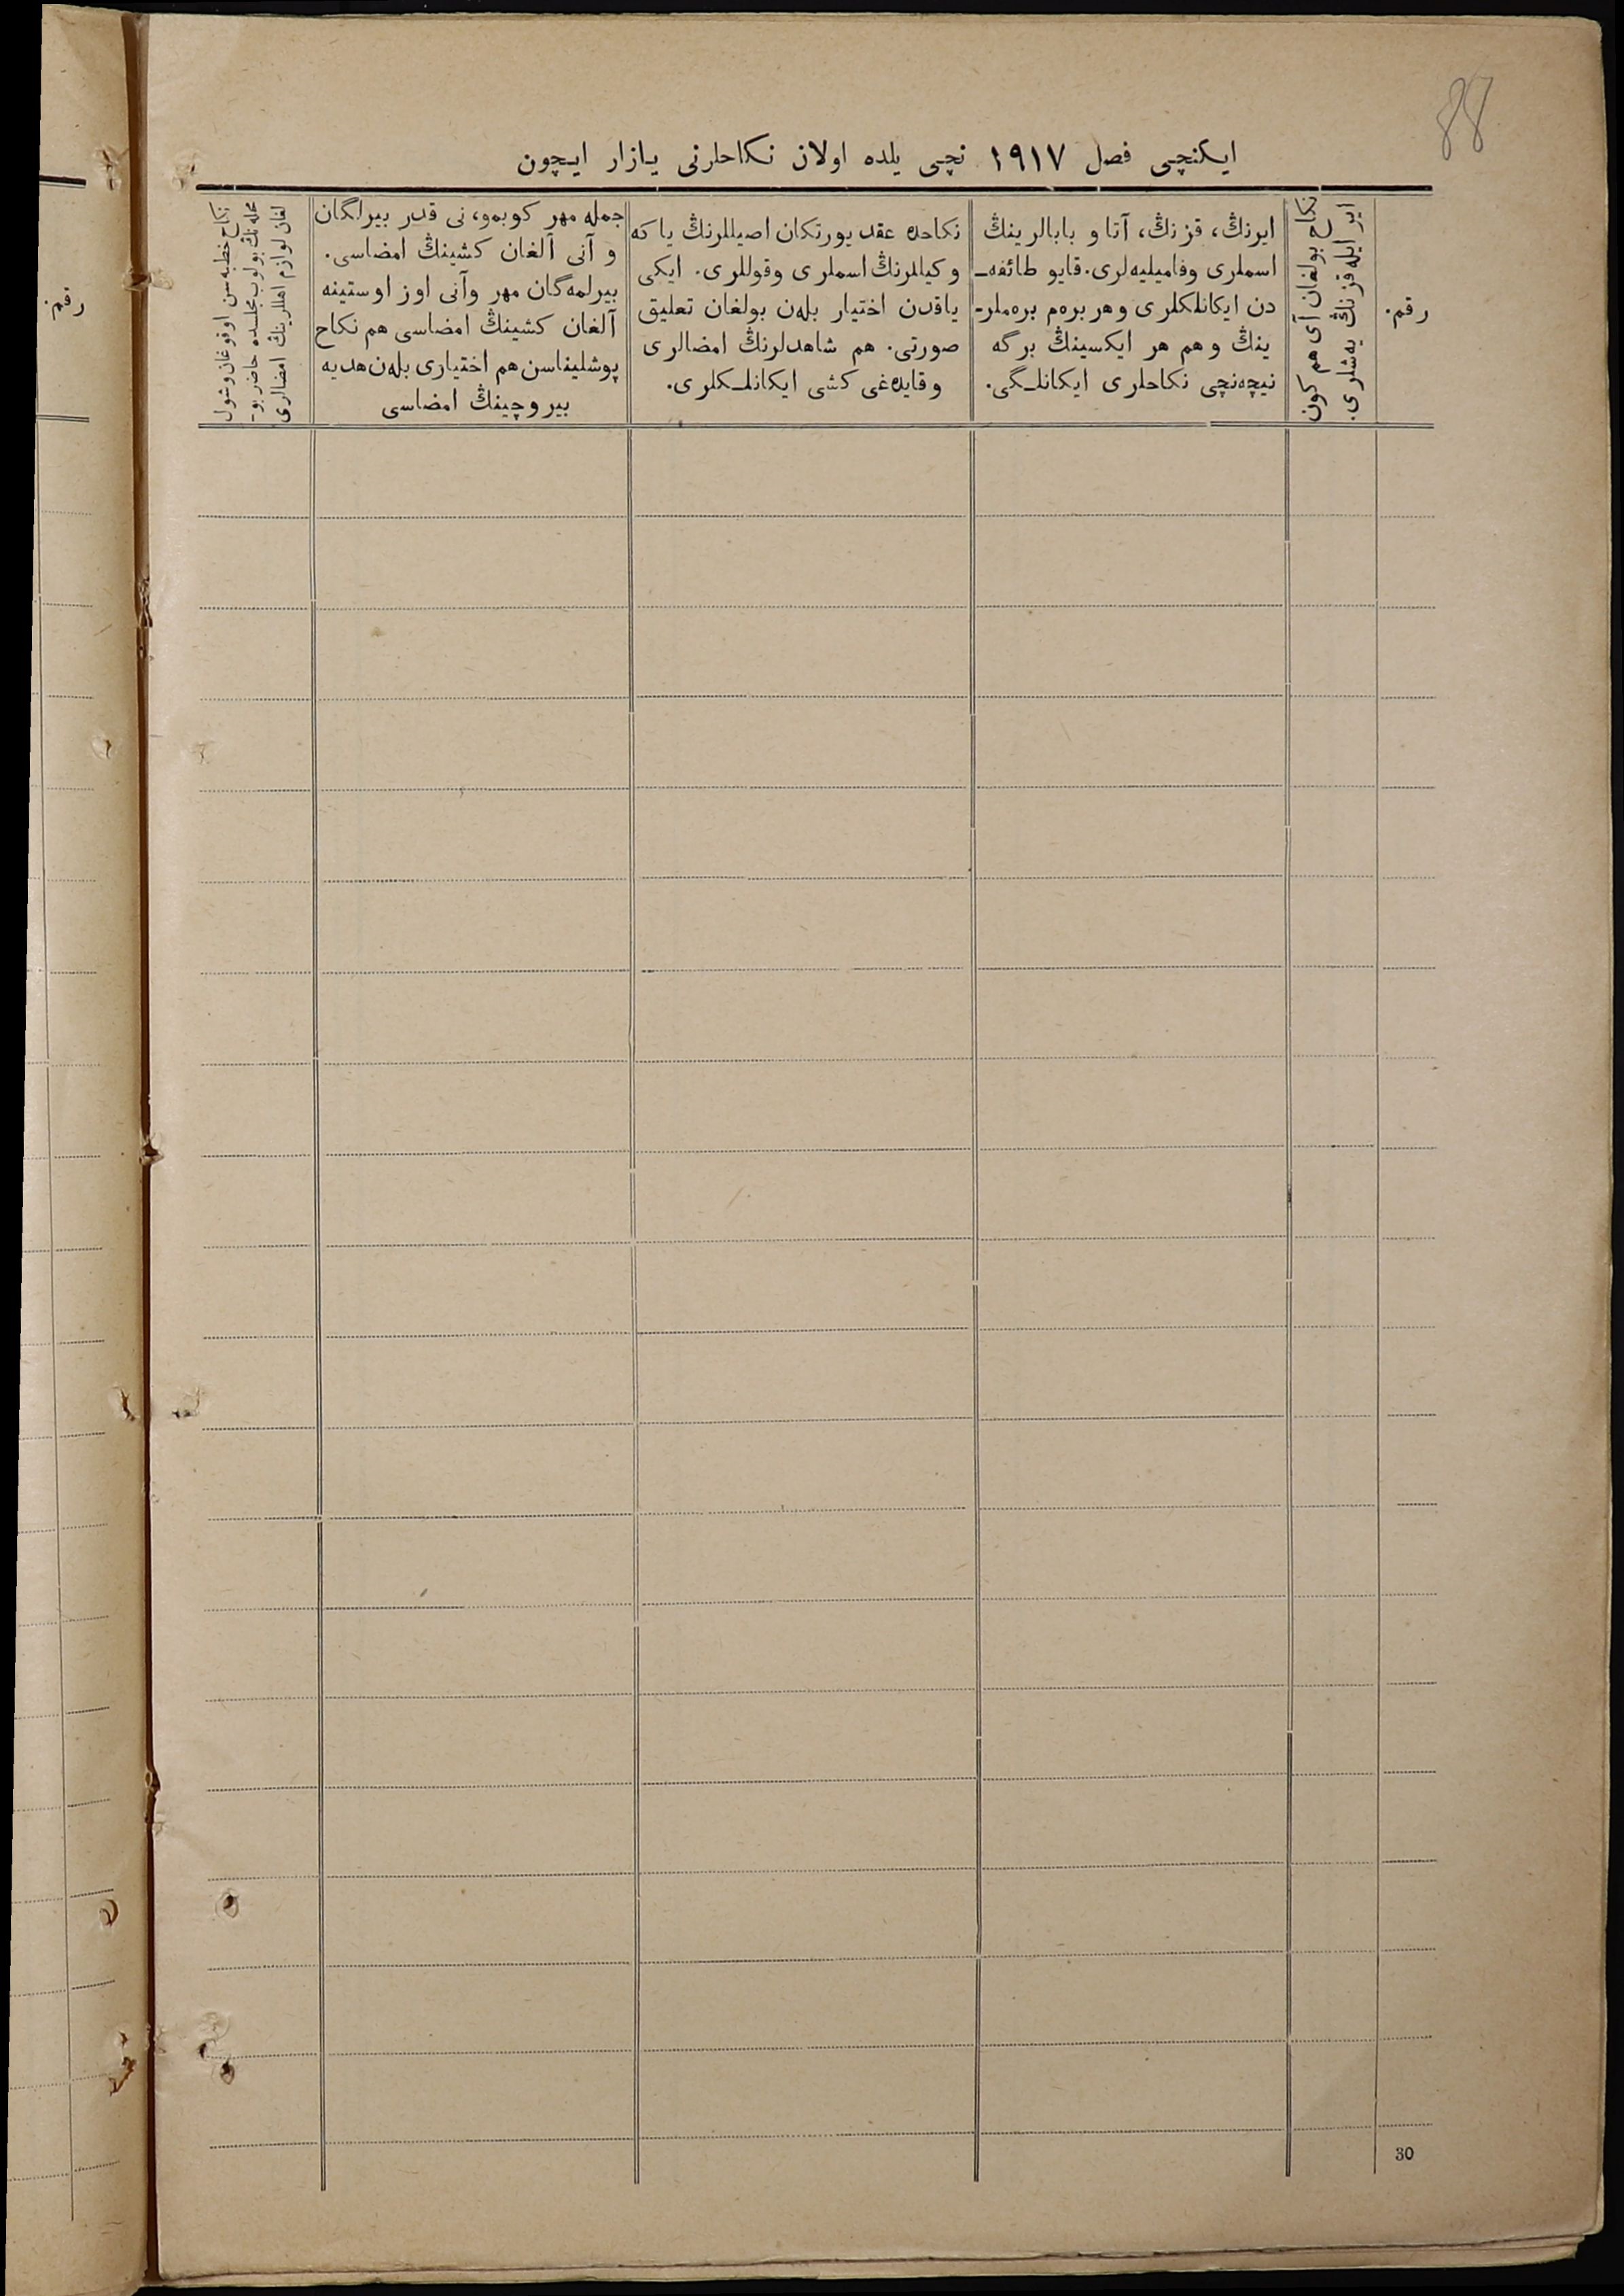 88
ایكنچی فصل ١٩١٧ نچی یلده اولان نكاحلرنی یازار ایچون
رقم.
ایر ایله قزنڭ یه‌شلری.
نكاح بولغان آی هم كون
ایرنڭ، قزنڭ، آتا و بابالرینڭ
اسملری وفامیلیه‌لری. قایو طائفه‌ـ
دن ایكانلكلری وهر بره‌م بره‌ملرـ
ینڭ وهم هر ایكسینڭ برگه
نیچه‌نچی نكاحلری ایكانلـگی.
نكاحده عقد یورتكان اصیللرنڭ یا كه
وكیللرنڭ اسملری وقوللری. ایكی
یاقدن اختیار بله‌ن بولغان تعلیق
صورتی. هم شاهدلرنڭ امضالری
وقایده‌غی كشی ایكانلـكلری.
جمله مهر كوبمو، نی قدر بیرلگان
و آنی آلغان كشینڭ امضاسی.
بیرلمه‌گان مهر وآنی اوز اوستینه
آلغان كشینڭ امضاسی هم نكاح
پوشلیناسن هم اختیاری بله‌ن هدیه
بیروچینڭ امضاسی
نكاح خطبه‌سن اوقوغان وشول
محله‌نڭ بولوب مجلسده حاضر بوـ
لغان لوازم اهللرینڭ امضالری
رقم.
30